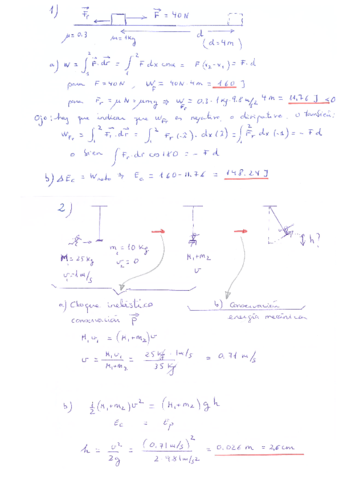 1)
Fr F = 40N
μ = 0.3 m = 1kg d
(d = 4m)
a) W = ∫₁² F·dr = ∫₁² F dx cosα = F(x₂-x₁) = F·d
para F = 40N, W_F = 40N 4m = 160 J
para Fr = μN = μmg ⇒ W_Fr = 0.3·1kg 9.8m/s² 4m = 11,76 J <0
Ojo: hay que indicar que W_Fr es negativo, o disipativo. o también:
W_Fr = ∫₁² Fr·dr = ∫₁² Fr(-î)·dx(î) = ∫₁² Fr dx(-1) = -F d
o bien ∫Fr dr cos180 = -Fd
b) ΔEc = Wneto ⇒ Ec = 160-11.76 = 148.24 J
2)
M = 25kg
v₁ = 1m/s
m₂ = 10kg
v₂ = 0
M₁+m₂
v
h?
a) Choque inelástico
conservación P
b) Conservación
energía mecánica
M₁v₁ = (M₁+m₂)v
v = M₁v₁/(M₁+m₂) = 25kg·1m/s / 35kg = 0.71 m/s
b) ½(M₁+m₂)v² = (M₁+m₂)gh
ec = ep
h = v²/2g = (0.71m/s)²/(2·9.81m/s²) = 0.026m = 2.6cm